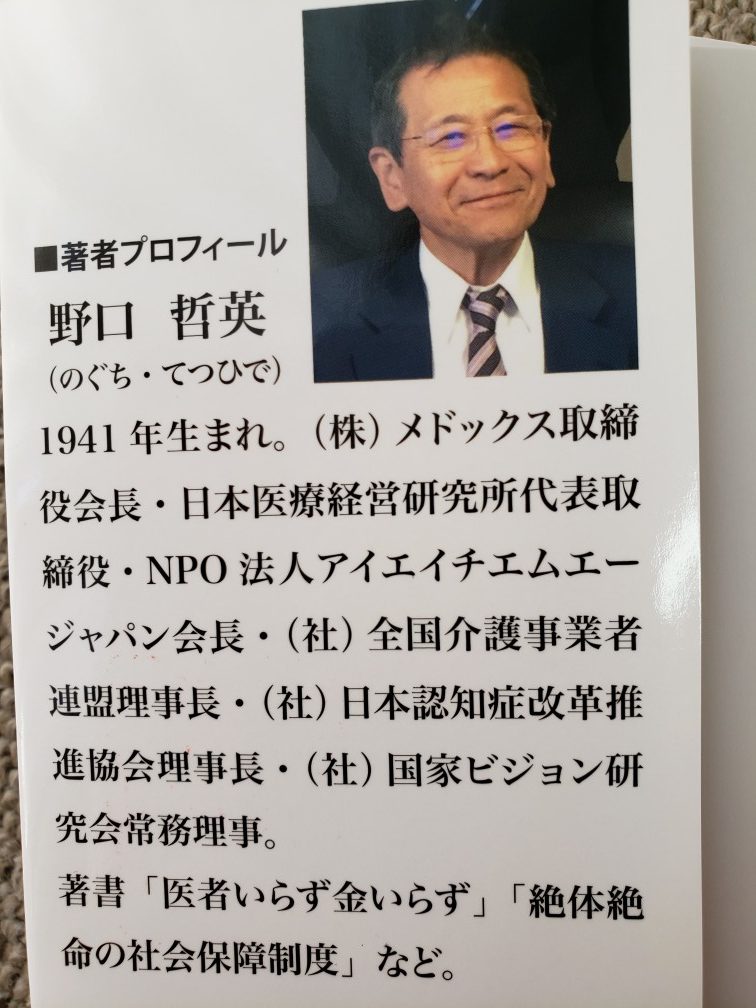 ■著者プロフィール
野口 哲英
(のぐち・てつひで)
1941年生まれ。(株)メドックス取締
役会長・日本医療経営研究所代表取
締役・NPO法人アイエイチエムエー
ジャパン会長・(社)全国介護事業者
連盟理事長・(社)日本認知症改革推
進協会理事長・(社)国家ビジョン研
究会常務理事。
著書「医者いらず金いらず」「絶体絶
命の社会保障制度」など。